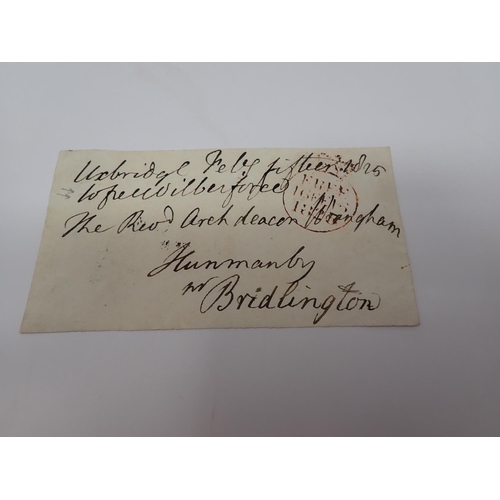 Uxbridge Feby fifteen 1825
WWilberforce
The Revd Archdeacon Wrangham
Hunmanby
nr Bridlington
FREE